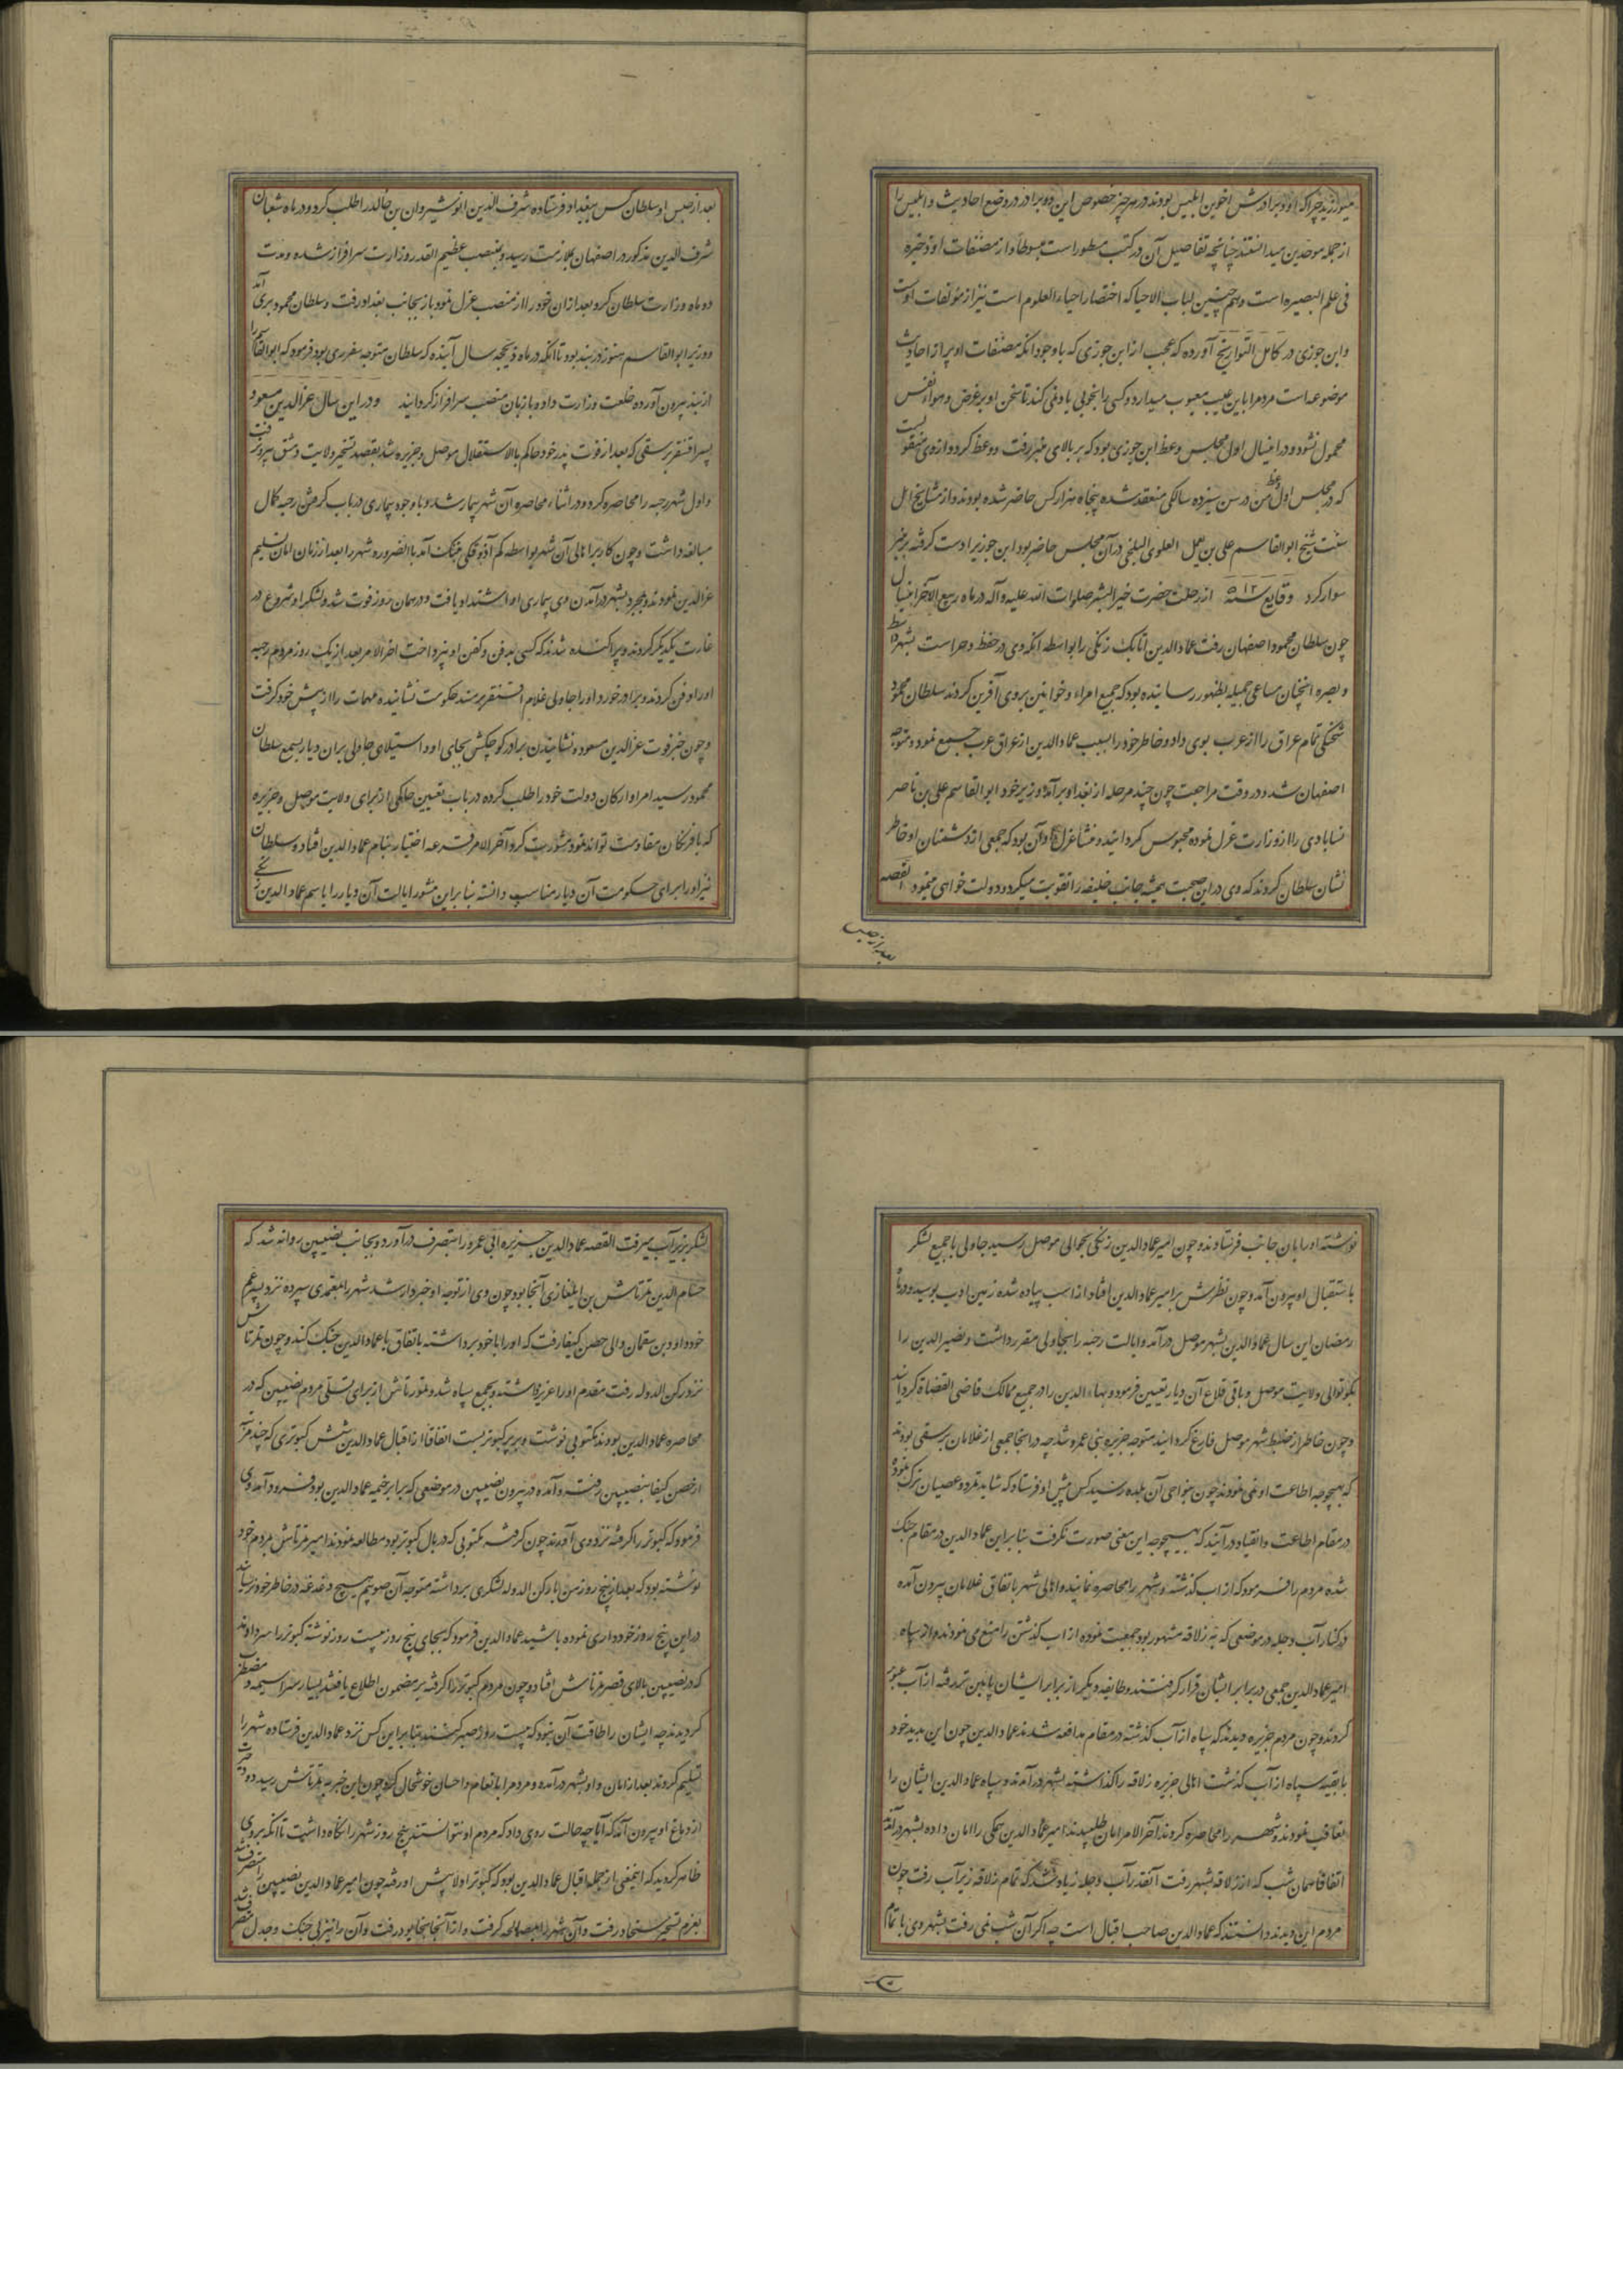 میورزید چرا که او و برادرش اخوین ابلیس بودند در هر چیز خصوص این دو برادر در وضع احادیث و ابلیس را
از جمله موحدین میدانستند چنانچه تفاصیل آن در کتب مسطور است مبسوطا و از مصنفات او ذخیره
فی علم البصیره است و هم چنین لباب الاحیا که اختصار احیاء العلوم است نیز از مؤلفات اوست
و ابن جوزی در کامل التواریخ آورده که عجب از ابن جوزی که با وجود آنکه مصنفات او پر از احادیث
موضوعه است مردم را باین عیب معیوب میدارد و کسی را بخوبی یاد نمی کند تا سخن او بر غرض و هواء نفس
محمول نشود و در اینسال اول مجلس وعظ ابن جوزی بود که بر بالای منبر رفت و وعظ کرد و از وی منقولست
که در مجلس اول وعظ من در سن سیزده سالکی منعقد شده پنجاه هزار کس حاضر شده بودند و از مشایخ اهل
سنت شیخ ابوالقاسم علی بن یعلی العلوی البلخی در آن مجلس حاضر بود ابن جوزیرا دست کرفته بر منبر
سوار کرد وقایع سنه ۵۱۲ از رحلت حضرت خیر البشر صلوات الله علیه و آله در ماه ربیع الآخر اینسال
چون سلطان محمود اصفهان رفت عماد الدین اتابک زنکی را بواسطه انکه وی در حفظ و حراست بشهر واسط
و بصره انچنان مساعی جمیله بظهور رسانیده بود که جمیع امراء و خوانین بروی آفرین کردند سلطان محمود
شحنکی تمام عراق را از عرب بوی داد و خاطر خود را بسبب عماد الدین از عراق عرب جمع نمود و متوجه
اصفهان شد و در وقت مراجعت چون چند مرحله از بغداد بر آمد وزیر خود ابوالقاسم علی بن ناصر
نسابادی را از وزارت عزل نموده محبوس کردانید و منشا عزل او آن بود که جمعی از دشمنان او خاطر
نشان سلطان کردند که وی در این صحبت همیشه جانب خلیفه را تقویت میکرد و دولت خواهی مینمود القصه
بعد از حبس
بعد از حبس او سلطان کس ببغداد فرستاده شرف الدین انوشیروان بن خالد را طلب کرد و در ماه شعبان
شرف الدین مذکور در اصفهان بملازمت رسید و بمنصب عظیم القدر وزارت سرافراز شده و مدت
دو ماه وزارت سلطان کرد بعد از ان خود را از منصب عزل نمود باز بجانب بغداد رفت و سلطان محمود بری آمد
و وزیر ابوالقاسم هنوز در بند بود تا آنکه در ماه ذیحجه سال آینده که سلطان متوجه سفر ری بود فرمود که ابوالقاسم را
از بند بیرون آورده خلعت وزارت داد و باز بان منصب سرافراز کردانید و در این سال عز الدین مسعود
پسر اقسنقر برسقی که بعد از فوت پدر خود حاکم بالاستقلال موصل و جزیره شد بقصد تسخیر ولایت دمشق بیرون رفت
و اول شهر رحبه را محاصره کرد و در اثناء محاصره آن شهر بیمار شد و با وجود بیماری در باب کرفتن رحبه کمال
مبالغه داشت و چون کار بر اهالی آن شهر بواسطه کم آذوقکی بتنک آمد بالضروره شهر را بعد از زمان امان تسلیم
عز الدین نمودند و بمجرد بشهر در آمدن وی بیماری او اشتداد یافت و در همان روز فوت شد و لشکر او شروع در
غارت یکدیکر کردند و پراکنده شدند که کسی بدفن و کفن او نپرداخت اخر الامر بعد از یک روز مردم رحبه
او را دفن کردند و برادر خورد او را جاولی غلام اقسنقر بر مسند حکومت نشانیده مهمات را از پیش خود کرفت
و چون خبر فوت عز الدین مسعود و نشانیدن برادر کوچکش بجای او و استیلای جاولی بران دیار بسمع سلطان
محمود رسید امراء و ارکان دولت خود را طلب کرده در باب تعیین حاکمی از برای ولایت موصل و جزیره
که با فرنکان مقاومت تواند نمود مشورت کرد آخر الامر قرعه اختیار بنام عماد الدین افتاد و سلطان
نیز او را برای حکومت آن دیار مناسب دانسته بنا براین منشور ایالت آن دیار را باسم عماد الدین زنکی
نوشته او را بان جانب فرستادند و چون امیر عماد الدین زنکی بحوالی موصل رسید جاولی با جمیع لشکر
باستقبال او بیرون آمد و چون نظرش بر امیر عماد الدین افتاد از اسب پیاده شده زمین ادب بوسید و در ماه
رمضان این سال عماد الدین بشهر موصل در آمد و ایالت رحبه را بجاولی مقرر داشت و نصیر الدین را
بکوتوالی ولایت موصل و باقی قلاع آن دیار تعیین فرمود و بهاء الدین را در جمیع ممالک قاضی القضاة کردانید
و چون خاطر از ضبط شهر موصل فارغ کردانید متوجه جزیره بنی عمر و شد چه در انجا جمعی از غلامان برسقی بودند
که بهیچوجه اطاعت او نمی نمودند چون بنواحی آن بلده رسید کس پیش او فرستاد که شاید تمرد و عصیان ترک نمود
در مقام اطاعت و انقیاد در آیند که بهیچوجه این معنی صورت نکرفت بنا براین عماد الدین در مقام جنک
شده مردم را فرمود که از اب کذشته و شهر را محاصره نمایند و اهالی شهر باتفاق غلامان بیرون آمده
در کنار آب دجله در موضعی که به زلاقه مشهور بود جمعیت نموده از اب کذشتن را منع می نمودند و از سپاه
امیر عماد الدین جمعی در برابر ایشان قرار کرفتند و طایفه دیکر از برابر ایشان پایین تر رفته از آب عبور
کردند و چون مردم جزیره دیدند که سپاه از آب کذشته در مقام مدافعه شدند عماد الدین چون این بدید خود
با بقیه سپاه از آب کذشت اهالی جزیره زلاقه را کذاشته بشهر در آمدند و سپاه عماد الدین ایشان را
تعاقب نمودند و شهر را محاصره کردند آخر الامر امان طلبیدند امیر عماد الدین همکی را امان داده بشهر در آمد
اتفاقا همان شب که از زلاقه بشهر رفت آنقدر آب دجله زیاد شد که تمام زلاقه زیر آب رفت چون
مردم این دیدند دانستند که عماد الدین صاحب اقبال است چه اکر آن شب نمی رفت بشهر وی با تمام
لشکر بزیر آب میرفت القصه عماد الدین جزیره ابی عمرو را بتصرف در آورد و بجانب نصیبین روانه شد که
حسام الدین تمرتاش بن ایلغازی آنجا بود چون وی از توجه او خبردار شد شهر را بمعتمدی سپرده نزد پسر عم
خود داود بن سقمان والی حصن کیفا رفت که او را با خود برداشته باتفاق با عماد الدین جنک کند و چون تمرتاش
نزد رکن الدوله رفت مقدم او را عزیز داشته و بجمع سپاه شد و تمرتاش از برای تسلی مردم نصیبین که در
محاصره عماد الدین بودند مکتوبی نوشت و بر پر کبوتر بست اتفاقا از اقبال عماد الدین شش کبوتری که چند مرتبه
از حصن کیفا بنصیبین رفته و آمده در بیرون نصیبین در موضعی که برابر خیمه عماد الدین بود فرود آمد وی
فرمود که کبوتر را کرفته نزد وی آوردند چون کرفته مکتوبی که در بال کبوتر بود مطالعه نمودند امیر تمرتاش بمردم خود
نوشته بود که بعد از پنج روز من با رکن الدوله لشکری برداشته متوجه آن صوبیم هیچ دغدغه در خاطر خود نرسانید
در این پنج روز خودداری نموده باشید عماد الدین فرمود که بجای پنج روز بیست روز نوشته کبوتر را سر دادند
که در نصیبین بالای قصر تمرتاش افتاد و چون مردم کبوتر را کرفته بر مضمون اطلاع یافتند بسیار سراسیمه و مضطرب
کردیدند چه ایشان را طاقت آن نبود که بیست روز صبر کنند بنا براین کس نزد عماد الدین فرستاده شهر را
تسلیم کردند بعد از امان و او بشهر در آمده و مردم را بانعام و احسان خوشحال کرد چون این خبر به تمرتاش رسید دود حیرت
از دماغ او بیرون آمد که آیا چه حالت روی داد که مردم او نتوانستند پنج روز شهر را نکاه داشت تا انکه بروی
ظاهر کردید که اینمعنی از جمله اقبال عماد الدین بود که کبوتر اولا پیش او رفته چون امیر عماد الدین نصیبین را متصرف شد
بعزم تسخیر سنجار رفت و آن شهر را بمصالحه کرفت و از آنجا بخابور رفت و آن را نیز بی جنک و جدل متصرف شد